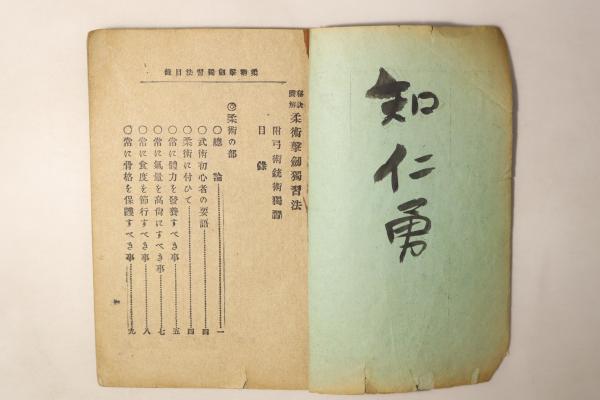 知仁勇
柔術擊劍獨習法目錄
秘訣
圖解
柔術擊劍獨習法
附弓術銃術獨習
目錄
◎柔術の部
○總論 一
○武術初心者の要語 四
○柔術に付ひて 四
○常に體力を發養すべき事 五
○常に氣量を高尚にすべき事 七
○常に食度を節行すべき事 八
○常に骨格を保護すべき事 九